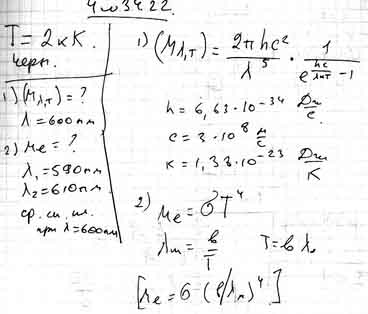 T = 2кК.
черн.
1) (Mλ,T) = ?
λ = 600 нм
2) Me = ?
λ₁ = 590 нм
λ₂ = 610 нм
ср. сп. пл.
при λ = 600 нм
1) (Mλ,T) = 2πhc²/λ⁵ · 1/(e^(hc/λkT) − 1)
h = 6,63·10⁻³⁴ Дж/с
c = 3·10⁸ м/с
k = 1,38·10⁻²³ Дж/К
2) Me = σT⁴
λm = b/T T = b λ
[Me = σ (b/λm)⁴]